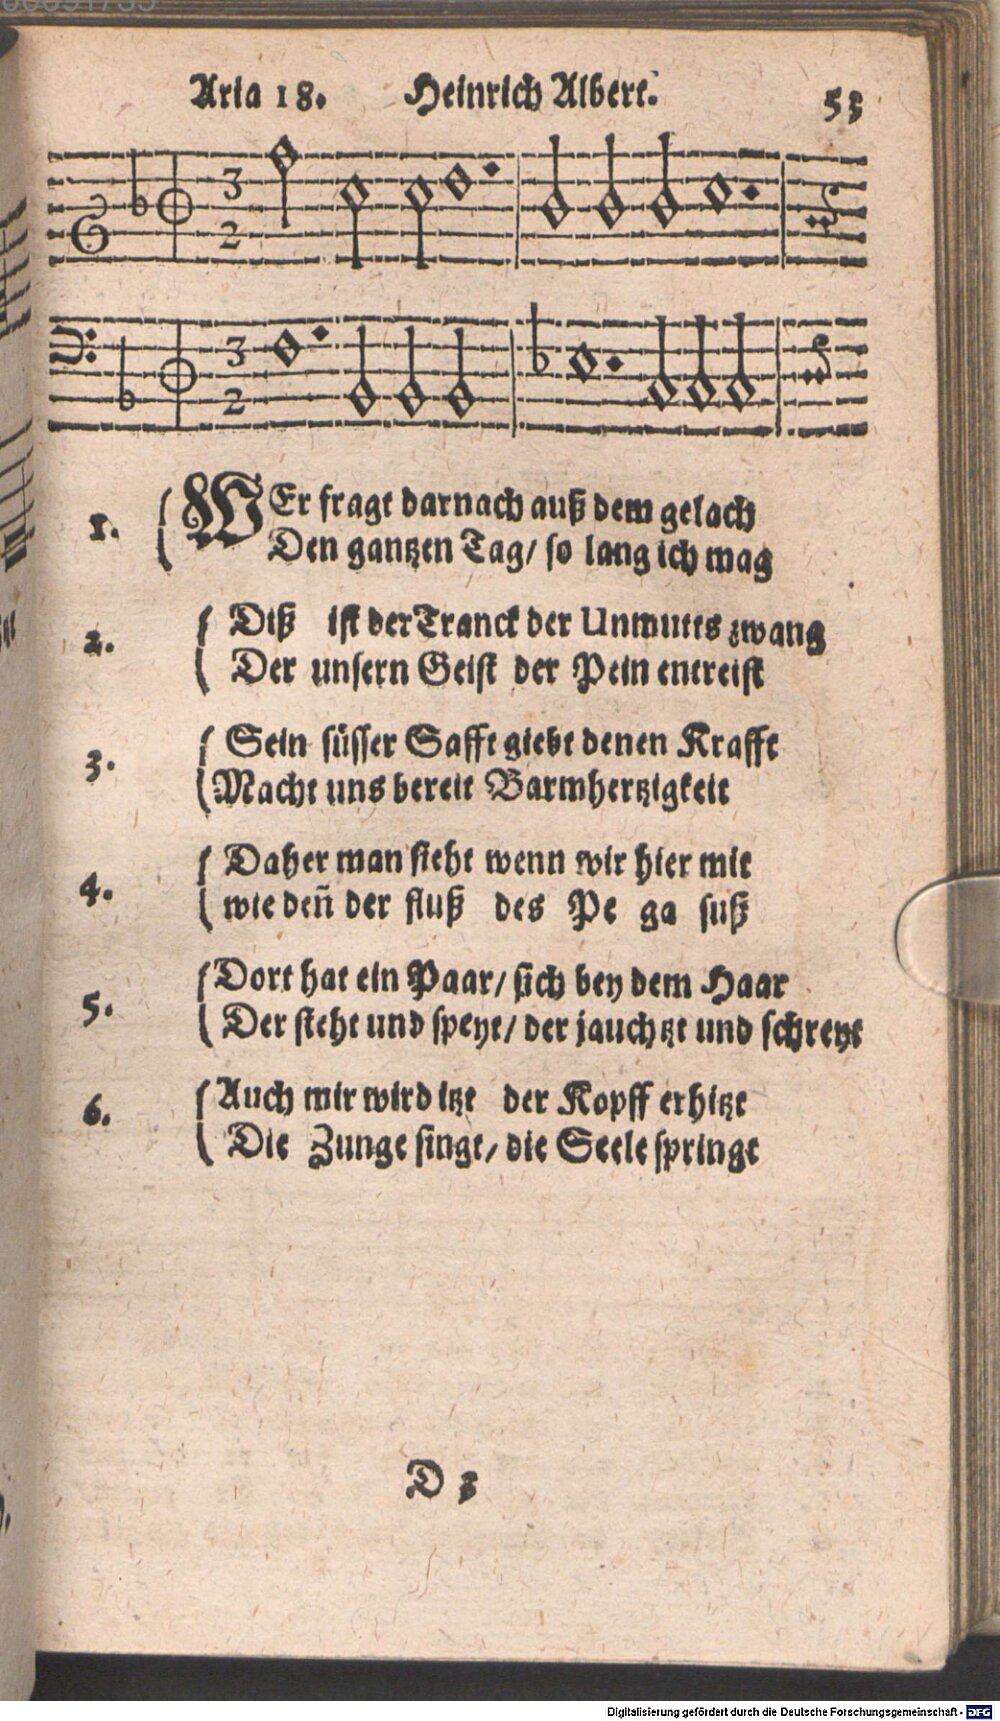 Aria 18. Heinrich Albert. 53
3
2
3
2
1. WEr fragt darnach auß dem gelach
Den gantzen Tag/ so lang ich mag
2. Diß ist der Tranck der Unmutts zwang
Der unsern Geist der Pein entreist
3. Sein süsser Safft giebt denen Krafft
Macht uns bereit Barmhertzigkeit
4. Daher man sieht wenn wir hier mit
wie deñ der fluß des Pe ga suß
5. Dort hat ein Paar/ sich bey dem Haar
Der steht und speyt/ der jauchtzt und schreyt
6. Auch mir wird itzt der Kopff erhitzt
Die Zunge singt/ die Seele springt
D 3
Digitalisierung gefördert durch die Deutsche Forschungsgemeinschaft - DFG